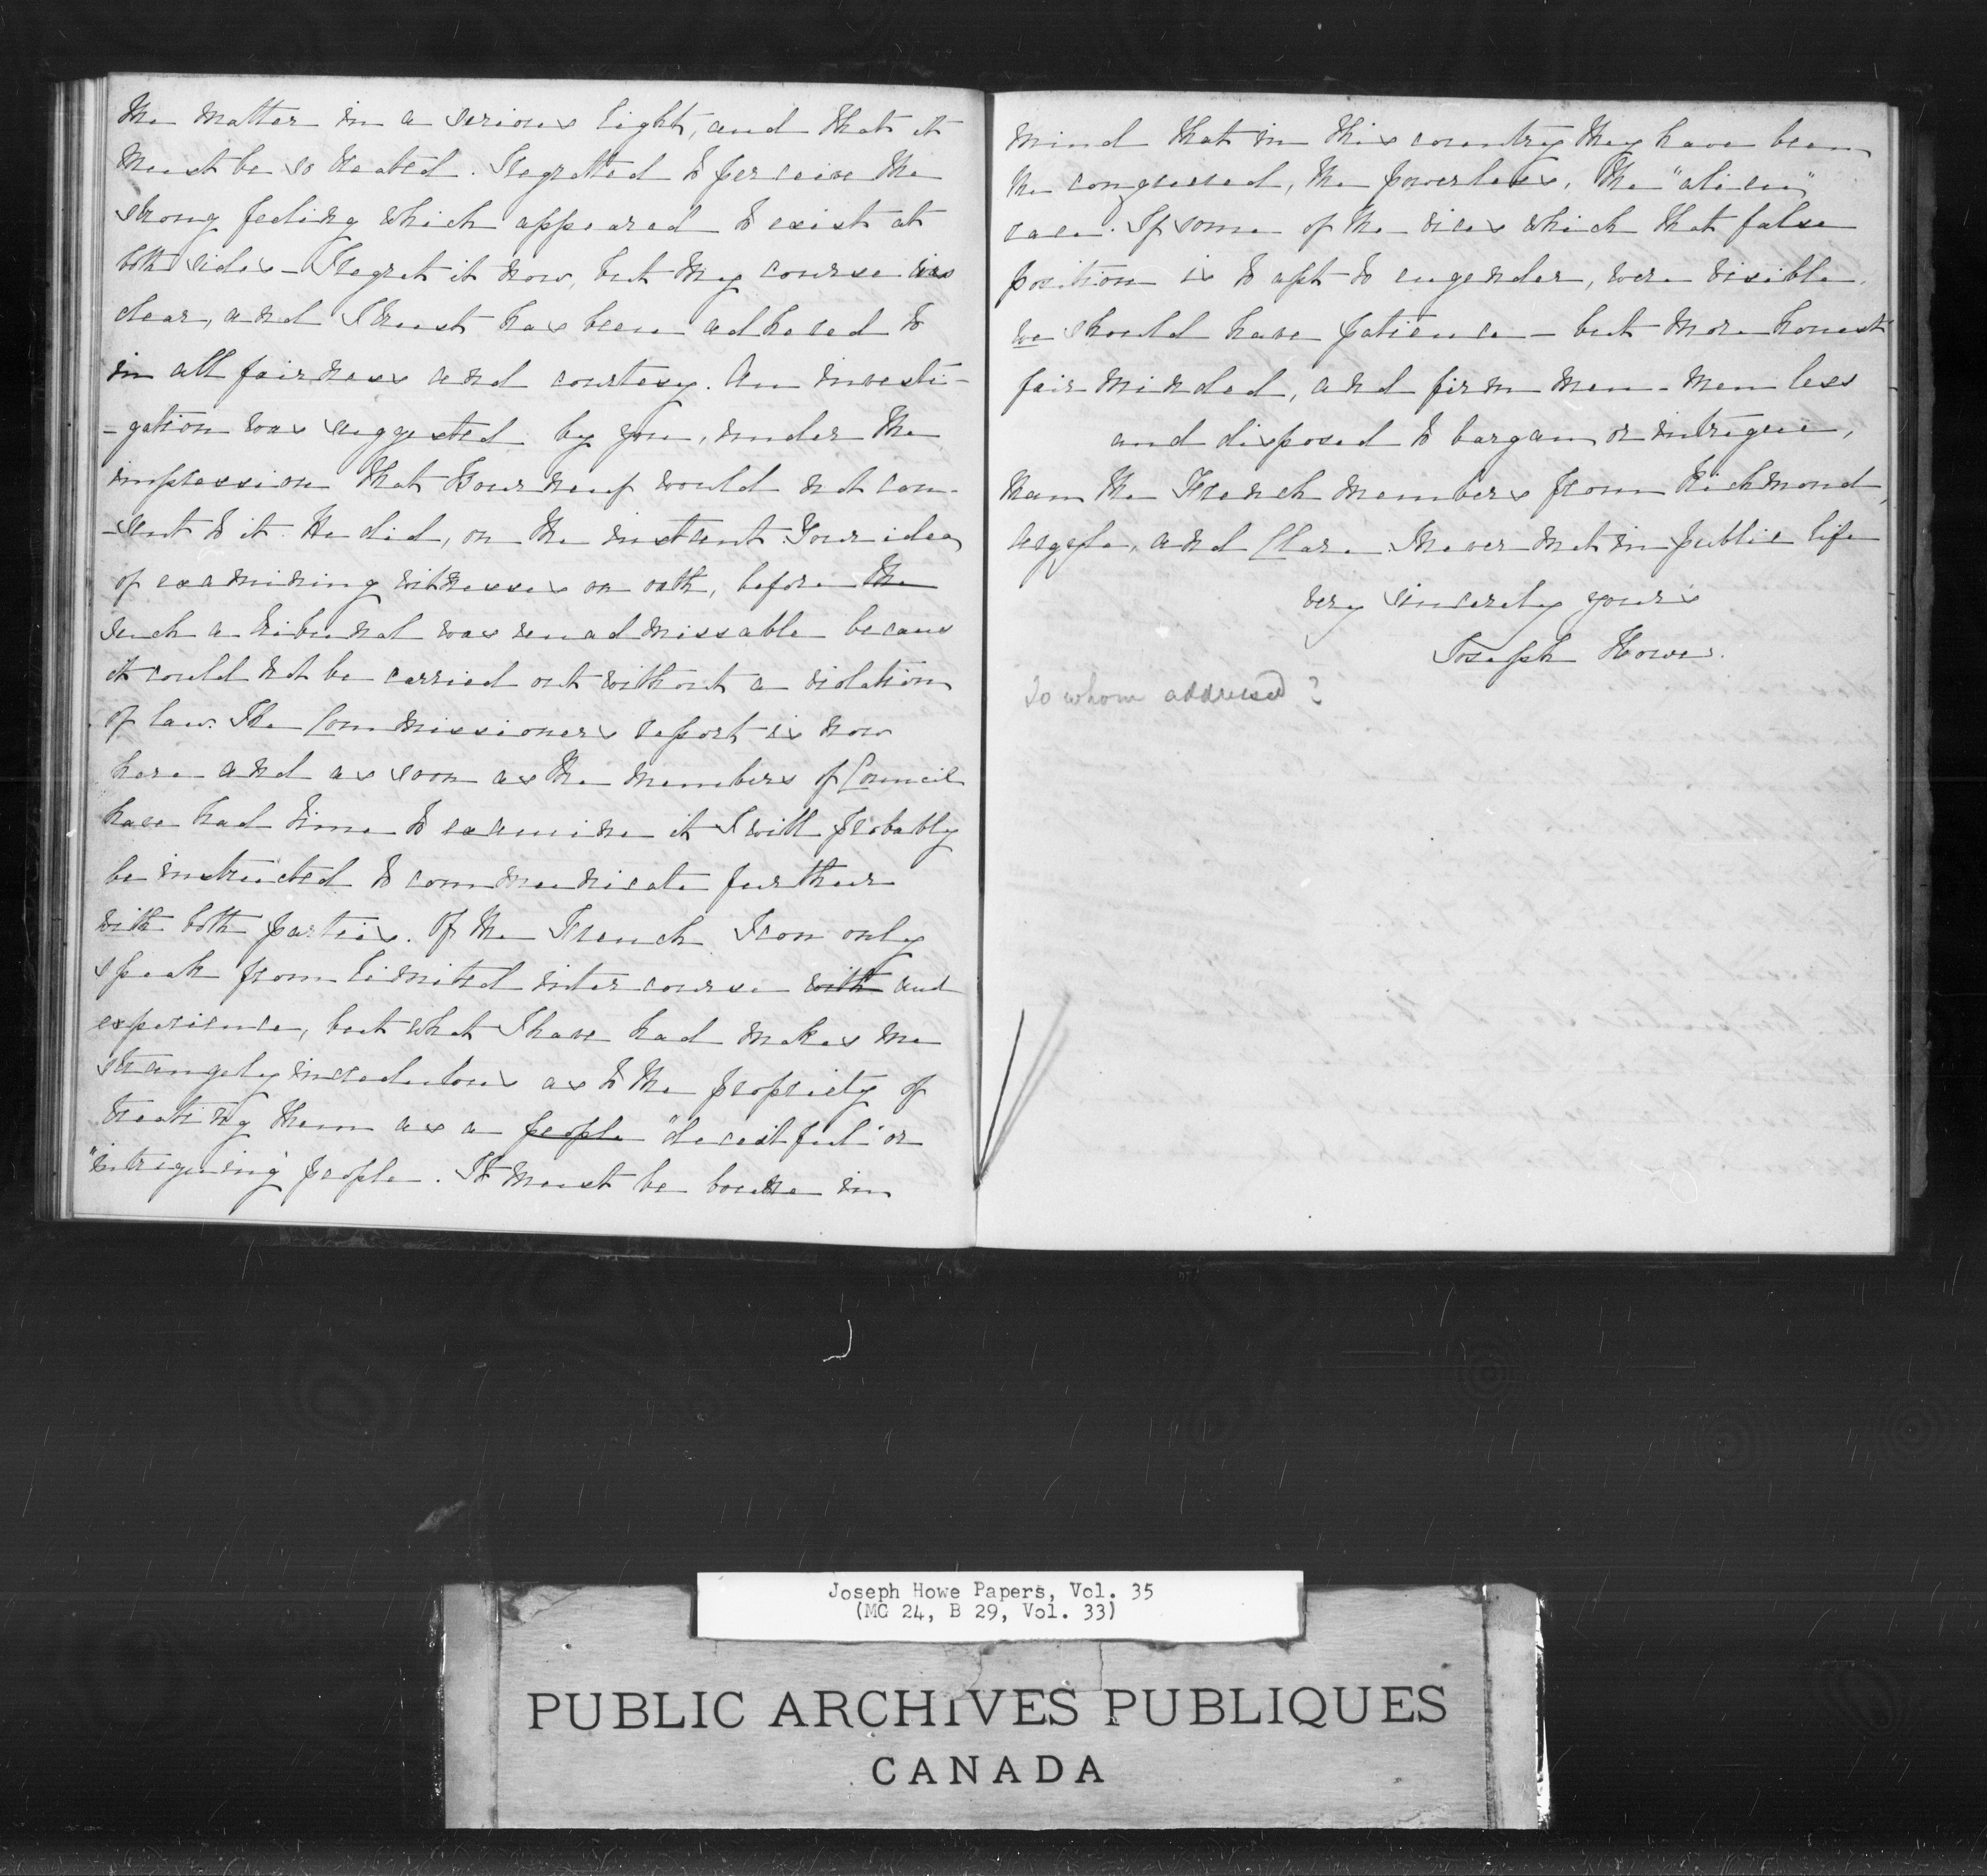 the matter in a serious light, and that it
must be so treated. I regretted to perceive the
strong feeling which appeared to exist at
both sides – I regret it now, but my course was
clear, and I trust has been adhered to
in all fairness and courtesy. An investi-
-gation was suggested by you, under the
impression that Bourneuf would not con-
-sent to it. He did, on the instant. Your idea
of examining witnesses on oath, before the
such a tribunal was unadmissable becaus
it could not be carried out without a violation
of law. The Commissioners report is now
here and as soon as the members of Council
have had time to examine it I will probably
be instructed to communicate further
with both parties. Of the French I can only
speak from limited intercourse with and
experience, but what I have had makes me
strangely incredulous as to the propriety of
treating them as a people "deceitful" or
"intriguing" people. It must be borne in
mind that in this country they have been
the conquered, the powerless, the "alien"
race. If some of the vices which that false
position is to apt to engender, were visible,
we should have patience – but more honest
fair minded, and firm men – men less
and disposed to bargain or intrigue,
than the French members from Richmond,
Argyle, and Clare I never met in public life
very sincerely yours
Joseph Howe.
To whom addressed?
Joseph Howe Papers, Vol. 35
(MG 24, B 29, Vol. 33)
PUBLIC ARCHIVES PUBLIQUES
CANADA